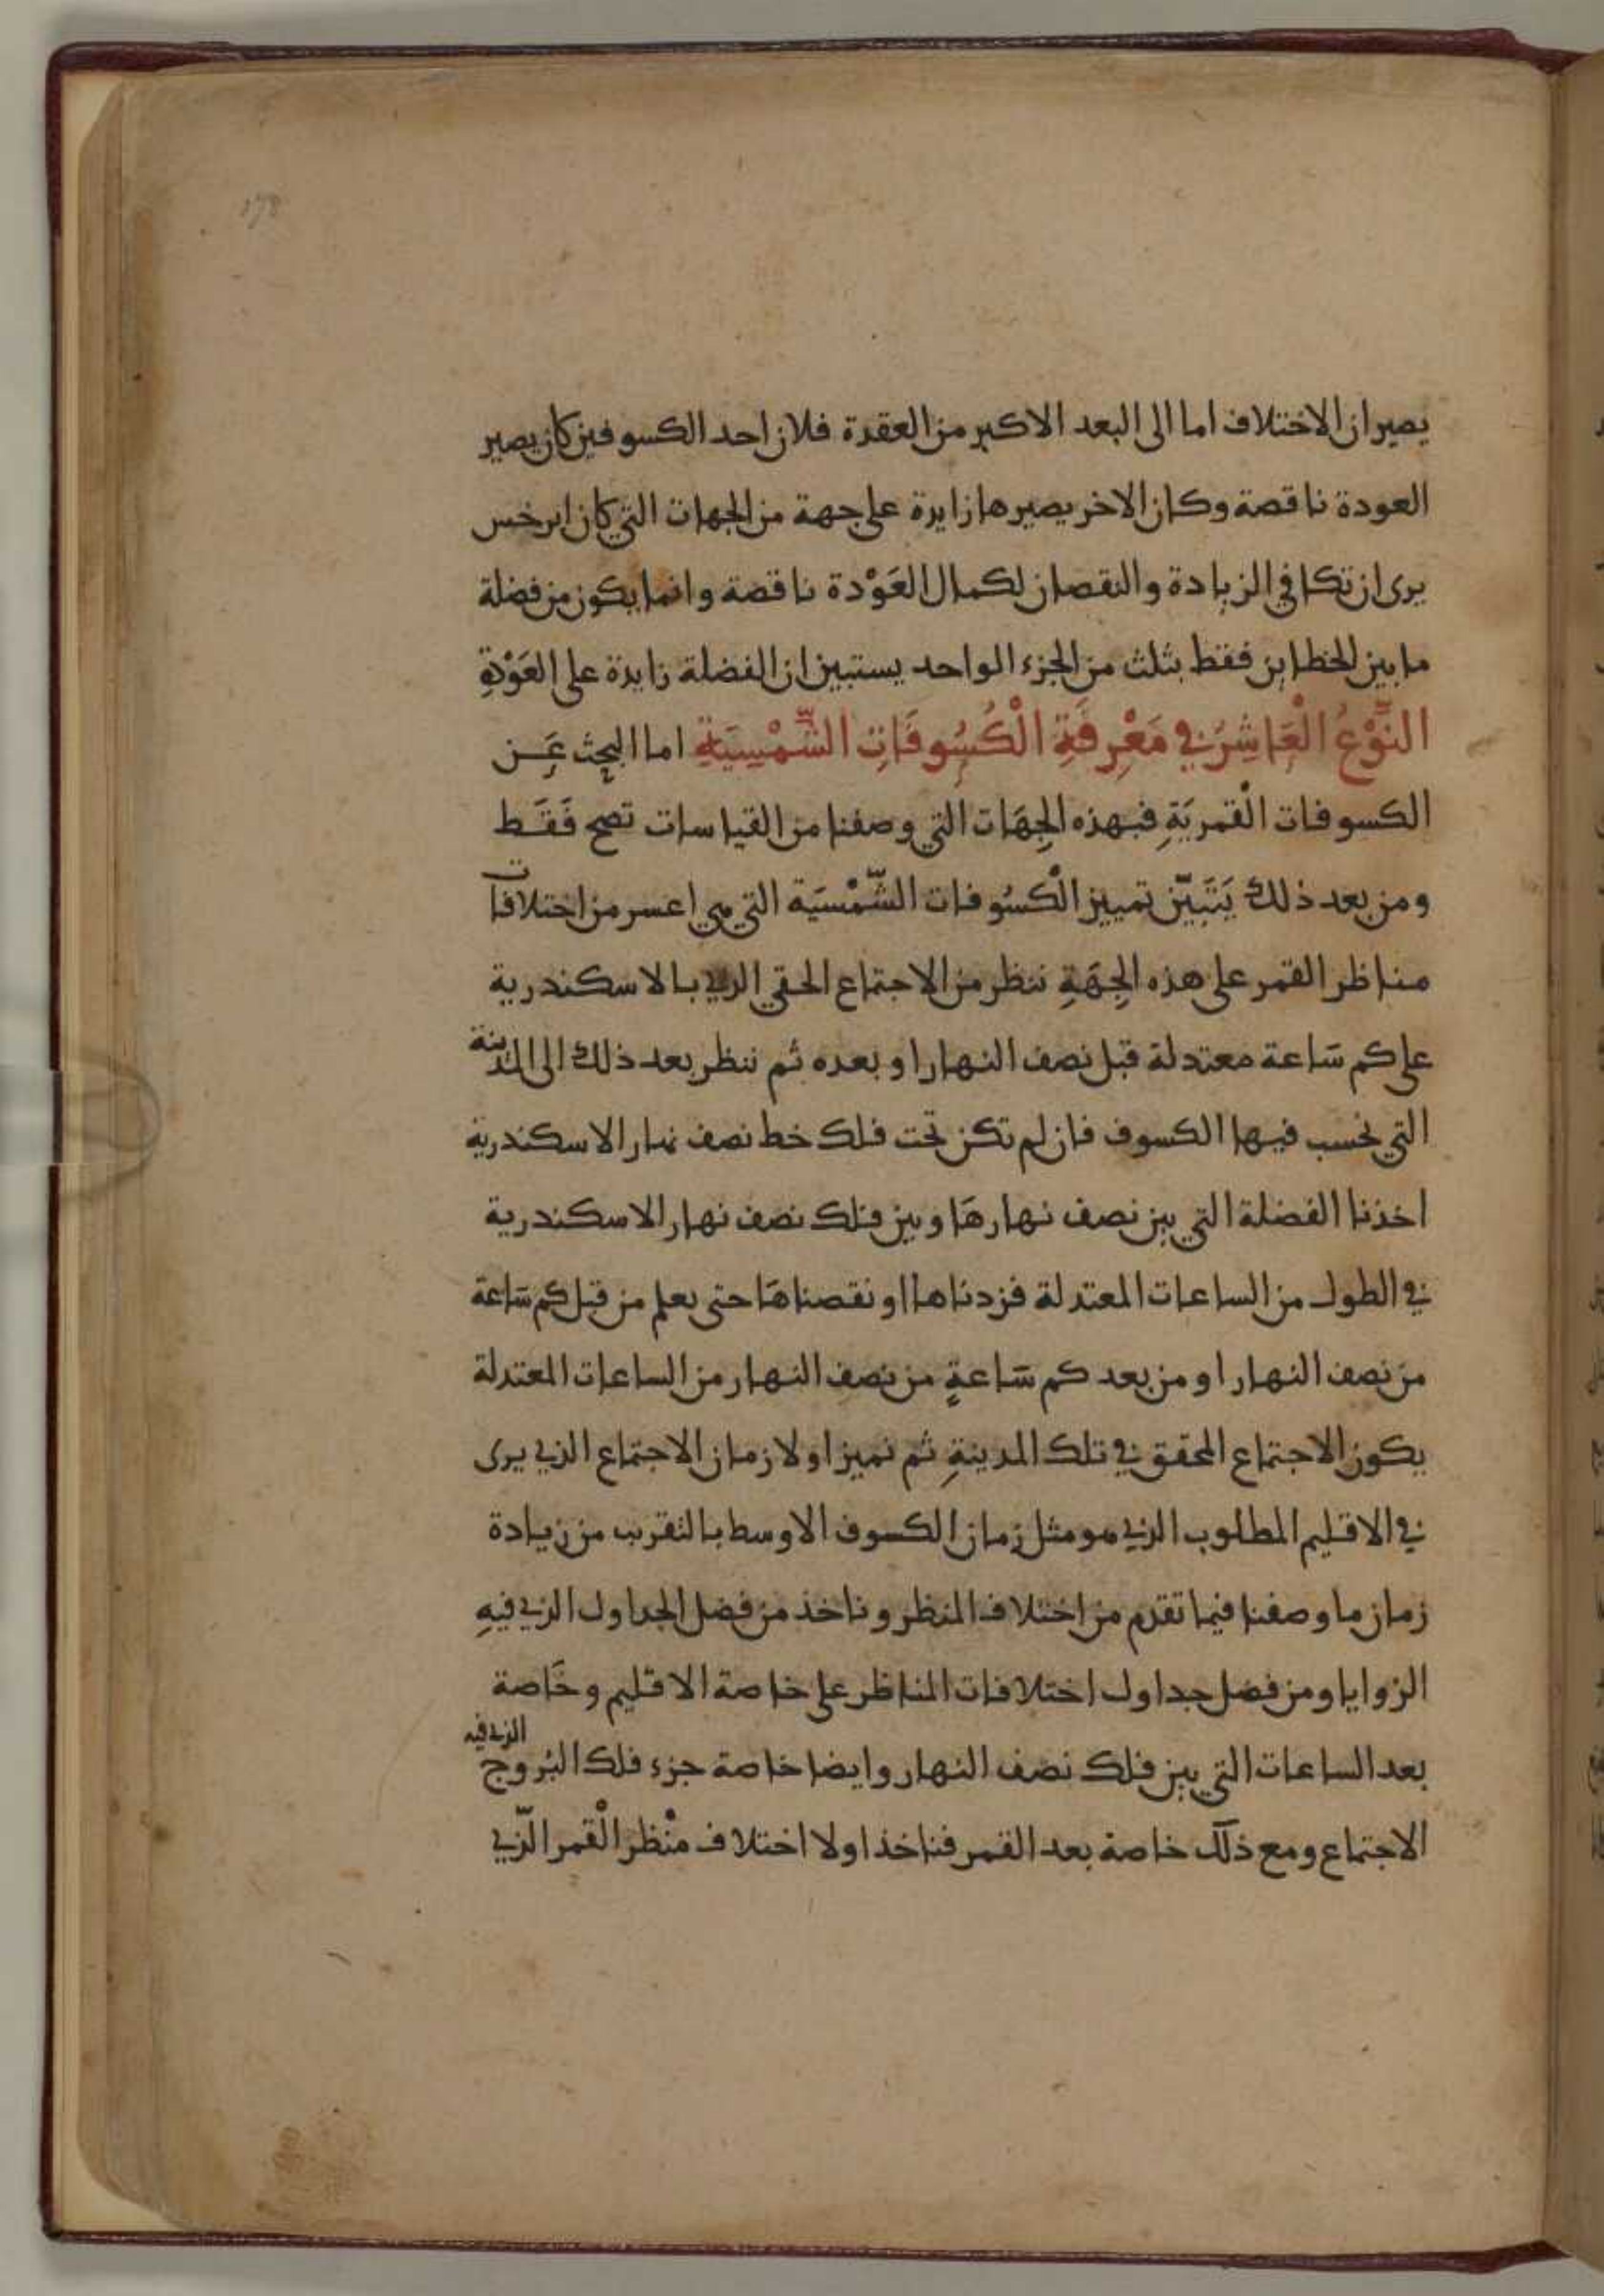 178
يصيران الاختلاف اما الى البعد الاكبر من العقدة فلان احد الكسوفين كان يصير
العودة ناقصة وكان الاخر يصيرها زايدة على جهة من الجهات التي كان ابرخس
يرى ان تكافي الزيادة والنقصان لكمال العَوْدة ناقصة وانما يكون من فضلة
ما بين الخطاين فقط بثلث من الجزء الواحد يستبين ان الفضلة زايدة على العَوْدةِ
النَّوْعُ الْعَاشِرُ في مَعْرِفَةِ الْكُسُوفَاتِ الشَّمْسِيَةِ اما البحث عَن
الكسوفات الْقمريَةِ فبهذه الجِهَات التي وصفنا من القياسات تصح فَقَط
ومن بعد ذلك يَتَبَيّن تمييز الْكسُوفات الشّمْسَيَة التي هي اعسر من اختلافات
مناظر القمر على هذه الجِهَةِ ننظر من الاجتماع الحقي الذي بالاسكندرية
على كم سَاعة معتدلة قبل نصف النهار او بعده ثم ننظر بعد ذلك الى المدينة
التي نحسب فيها الكسوف فان لم تكن تحت فلك خط نصف نهار الاسكندرية
اخذنا الفضلة التي بين نصف نهارهَا وبين فلك نصف نهار الاسكندرية
في الطول من الساعات المعتدلة فزدناها او نقصناهَا حتى يعلم من قبل كم سَاعة
من نصف النهار او من بعد كم سَاعةٍ من نصف النهار من الساعات المعتدلة
يكون الاجتماع المحقق في تلك المدينةِ ثم نميز اولا زمان الاجتماع الذي يرى
في الاقليم المطلوب الذي هو مثل زمان الكسوف الاوسط بالتقريب من زيادة
زمان ما وصفنا فيما تقدم من اختلاف المنظر وناخذ من فضل الجداول الذي فيهِ
الزوايا ومن فضل جداول اختلافات المناظر على خاصة الاقليم وخَاصة
بعد الساعات التي بين فلك نصف النهار وايضا خاصة جزء فلك البُروج الذي فيه
الاجتماع ومع ذلك خاصة بعد القمر فناخذ اولا اختلاف منْظر الْقمر الّذي